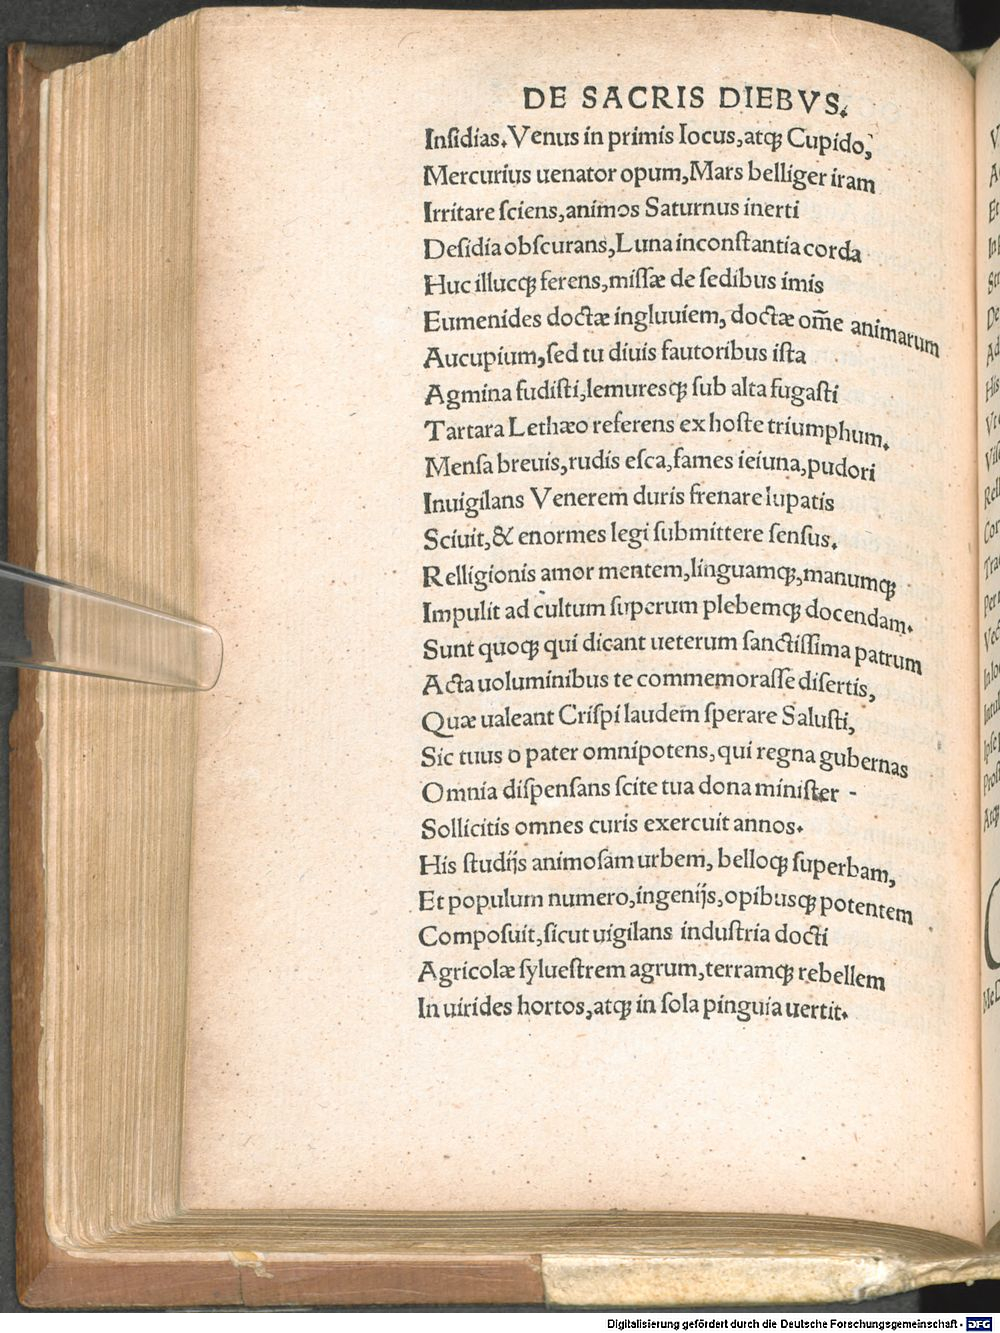 DE SACRIS DIEBVS.
Inſidias. Venus in primis Iocus, atqꝫ Cupido,
Mercurius uenator opum, Mars belliger iram
Irritare ſciens, animos Saturnus inerti
Deſidia obſcurans, Luna inconſtantia corda
Huc illucqꝫ ferens, miſſæ de ſedibus imis
Eumenides doctæ ingluuiem, doctæ om̄e animarum
Aucupium, ſed tu diuis fautoribus iſta
Agmina fudiſti, lemuresqꝫ ſub alta fugaſti
Tartara Lethæo referens ex hoſte triumphum.
Menſa breuis, rudis eſca, fames ieiuna, pudori
Inuigilans Venerem duris frenare lupatis
Sciuit, & enormes legi ſubmittere ſenſus.
Relligionis amor mentem, linguamqꝫ, manumqꝫ
Impulit ad cultum ſuperum plebemqꝫ docendam.
Sunt quoqꝫ qui dicant ueterum ſanctiſſima patrum
Acta uoluminibus te commemoraſſe diſertis,
Quæ ualeant Criſpi laudem ſperare Saluſti,
Sic tuus o pater omnipotens, qui regna gubernas
Omnia diſpenſans ſcite tua dona miniſter -
Sollicitis omnes curis exercuit annos.
His ſtudijs animoſam urbem, belloqꝫ ſuperbam,
Et populum numero, ingenijs, opibusqꝫ potentem
Compoſuit, ſicut uigilans induſtria docti
Agricolæ ſylueſtrem agrum, terramqꝫ rebellem
In uirides hortos, atqꝫ in ſola pinguia uertit.
Digitalisierung gefördert durch die Deutsche Forschungsgemeinschaft - DFG